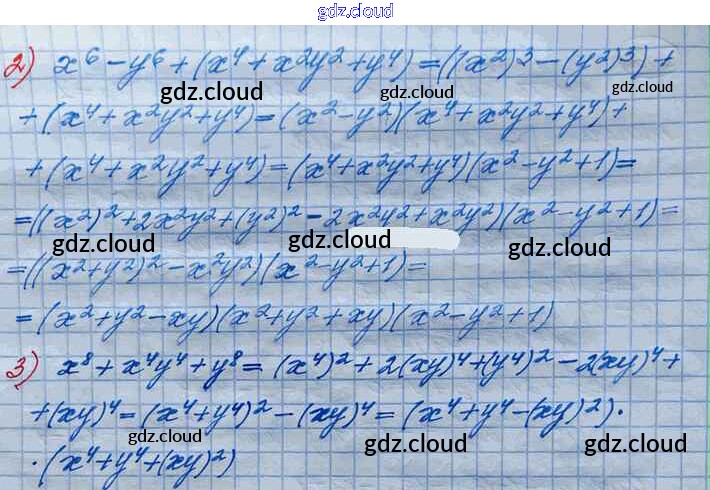 gdz.cloud
2) x⁶ - y⁶ + (x⁴ + x²y² + y⁴) = ((x²)³ - (y²)³) +
gdz.cloud gdz.cloud gdz.cloud
+ (x⁴ + x²y² + y⁴) = (x² - y²)(x⁴ + x²y² + y⁴) +
+ (x⁴ + x²y² + y⁴) = (x⁴ + x²y² + y⁴)(x² - y² + 1) =
= ((x²)² + 2x²y² + (y²)² - 2x²y² + x²y²)(x² - y² + 1) =
gdz.cloud gdz.cloud gdz.cloud
= ((x² + y²)² - x²y²)(x² - y² + 1) =
= (x² + y² - xy)(x² + y² + xy)(x² - y² + 1)
3) x⁸ + x⁴y⁴ + y⁸ = (x⁴)² + 2(xy)⁴ + (y⁴)² - 2(xy)⁴ +
+ (xy)⁴ = (x⁴ + y⁴)² - (xy)⁴ = (x⁴ + y⁴ - (xy)²) ·
gdz.cloud gdz.cloud gdz.cloud
· (x⁴ + y⁴ + (xy)²)